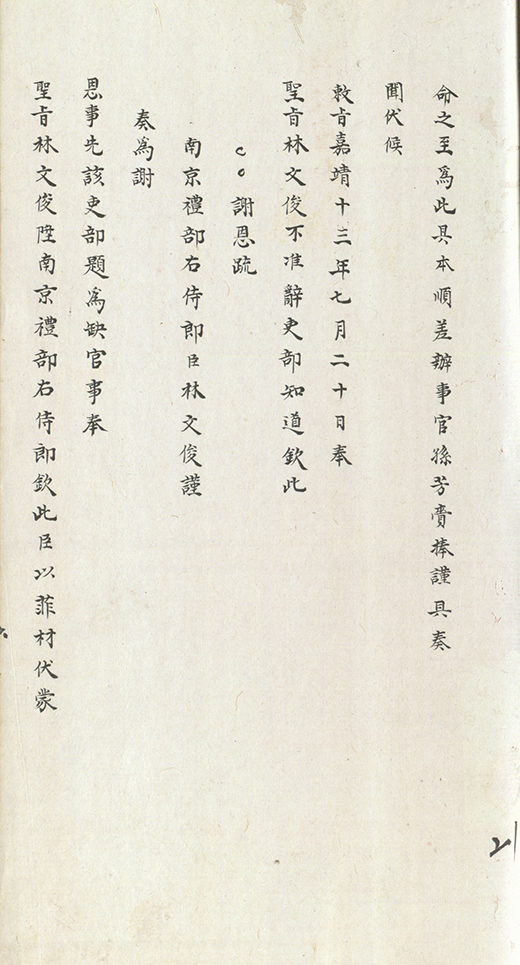 命之至爲此具本順差辦事官孫芳賫捧謹具奏
聞伏候
敕旨嘉靖十三年七月二十日奉
聖旨林文俊不准辭吏部知道欽此
謝恩疏
南京禮部右侍郎臣林文俊謹
奏爲謝
恩事先該吏部題爲缺官事奉
聖旨林文俊陞南京禮部右侍郎欽此臣以菲材伏蒙